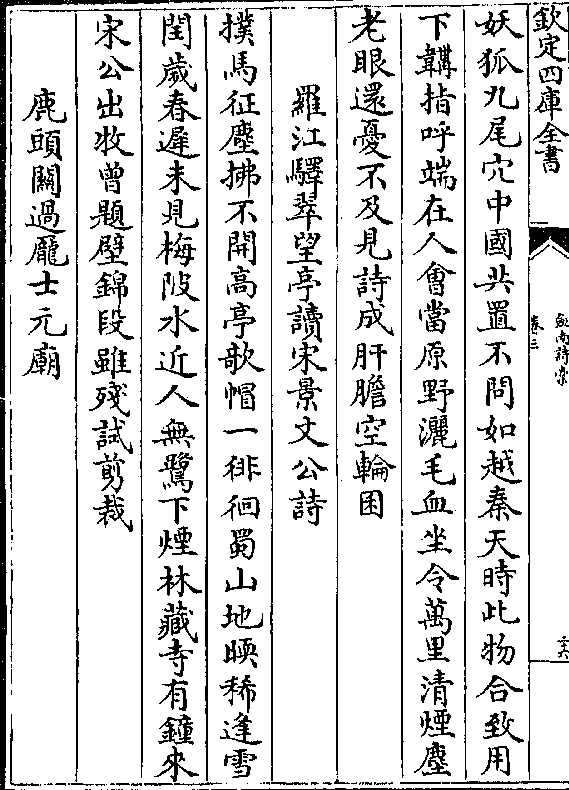 欽定四庫全書
劍南詩稾
卷三
二十六
妖狐九尾穴中國共置不問如越秦天時此物合致用
下韝指呼端在人會當原野灑毛血坐令萬里清煙塵
老眼還憂不及見詩成肝膽空輪囷
羅江驛翠望亭讀宋景文公詩
撲馬征塵拂不開高亭欹帽一徘徊蜀山地暖稀逢雪
閏歲春遲未見梅陂水近人無鷺下煙林藏寺有鐘來
宋公出牧曾題壁錦段雖殘試剪裁
鹿頭關過龐士元廟